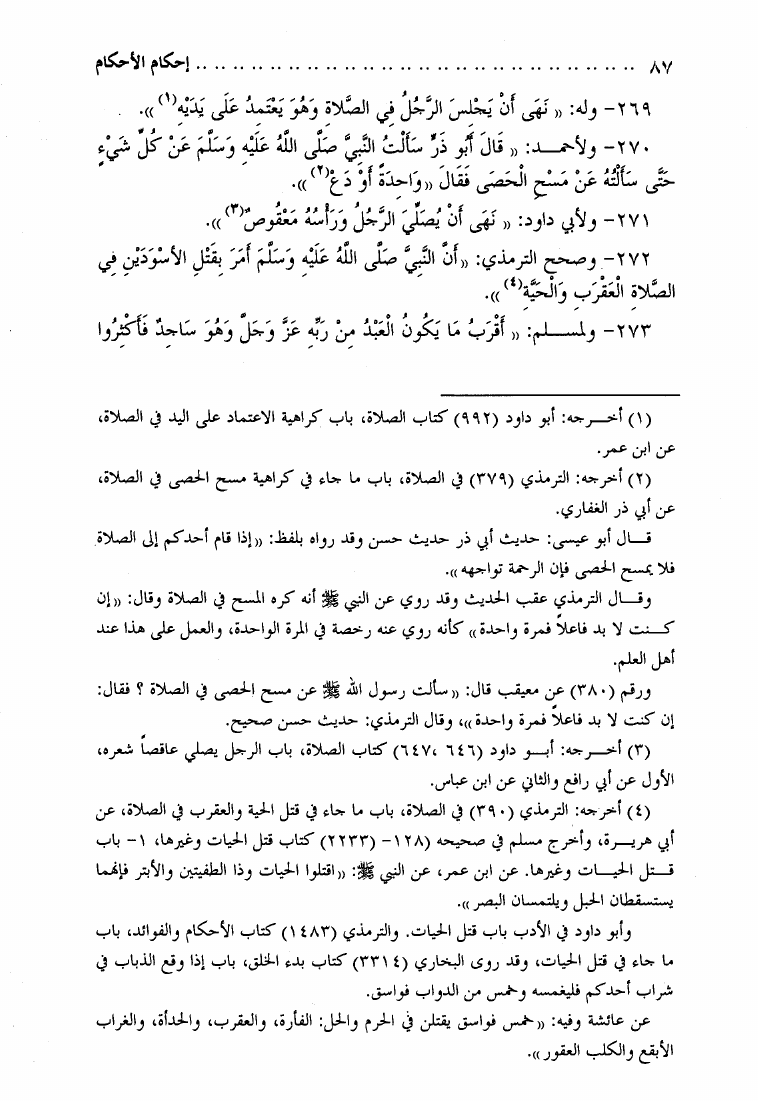 ٨٧ .. .. .. .. .. .. .. .. .. .. .. .. .. .. .. .. .. .. .. .. إحكام الأحكام
٢٦٩- وله: «نَهَى أَنْ يَجْلِسَ الرَّجُلُ فِي الصَّلاةِ وَهُوَ يَعْتَمِدُ عَلَى يَدَيْهِ(١)».
٢٧٠- ولأحمــد: «قَالَ أَبُو ذَرٍّ سَأَلْتُ النَّبِيَّ صَلَّى اللَّهُ عَلَيْهِ وَسَلَّمَ عَنْ كُلِّ شَيْءٍ
حَتَّى سَأَلْتُهُ عَنْ مَسْحِ الْحَصَى فَقَالَ «وَاحِدَةً أَوْ دَعْ(٢)».
٢٧١- ولأبي داود: «نَهَى أَنْ يُصَلِّيَ الرَّجُلُ وَرَأْسُهُ مَعْقُوصٌ(٣)».
٢٧٢- وصحح الترمذي: «أَنَّ النَّبِيَّ صَلَّى اللَّهُ عَلَيْهِ وَسَلَّمَ أَمَرَ بِقَتْلِ الأَسْوَدَيْنِ فِي
الصَّلاةِ الْعَقْرَبِ وَالْحَيَّةِ(٤)».
٢٧٣- ولمســلم: «أَقْرَبُ مَا يَكُونُ الْعَبْدُ مِنْ رَبِّهِ عَزَّ وَجَلَّ وَهُوَ سَاجِدٌ فَأَكْثِرُوا
(١) أخــرجه: أبو داود (٩٩٢) كتاب الصلاة، باب كراهية الاعتماد على اليد في الصلاة،
عن ابن عمر.
(٢) أخرجه: الترمذي (٣٧٩) في الصلاة، باب ما جاء في كراهية مسح الحصى في الصلاة،
عن أبي ذر الغفاري.
قــال أبو عيسى: حديث أبي ذر حديث حسن وقد رواه بلفظ: «إذا قام أحدكم إلى الصلاة
فلا يمسح الحصى فإن الرحمة تواجهه».
وقــال الترمذي عقب الحديث وقد روي عن النبي ﷺ أنه كره المسح في الصلاة وقال: «إن
كــنت لا بد فاعلاً فمرة واحدة» كأنه روي عنه رخصة في المرة الواحدة، والعمل على هذا عند
أهل العلم.
ورقم (٣٨٠) عن معيقب قال: «سألت رسول الله ﷺ عن مسح الحصى في الصلاة ؟ فقال:
إن كنت لا بد فاعلاً فمرة واحدة»، وقال الترمذي: حديث حسن صحيح.
(٣) أخــرجه: أبــو داود (٦٤٦، ٦٤٧) كتاب الصلاة، باب الرجل يصلي عاقصاً شعره،
الأول عن أبي رافع والثاني عن ابن عباس.
(٤) أخرجه: الترمذي (٣٩٠) في الصلاة، باب ما جاء في قتل الحية والعقرب في الصلاة، عن
أبي هريــرة، وأخرج مسلم في صحيحه (١٢٨- (٢٢٣٣) كتاب قتل الحيات وغيرها، ١- باب
قــتل الحيــات وغيرها. عن ابن عمر، عن النبي ﷺ: «اقتلوا الحيات وذا الطفيتين والأبتر فإنهما
يستسقطان الحبل ويلتمسان البصر».
وأبو داود في الأدب باب قتل الحيات. والترمذي (١٤٨٣) كتاب الأحكام والفوائد، باب
ما جاء في قتل الحيات، وقد روى البخاري (٣٣١٤) كتاب بدء الخلق، باب إذا وقع الذباب في
شراب أحدكم فليغمسه وخمس من الدواب فواسق.
عن عائشة وفيه: «خمس فواسق يقتلن في الحرم والحل: الفأرة، والعقرب، والحدأة، والغراب
الأبقع والكلب العقور».